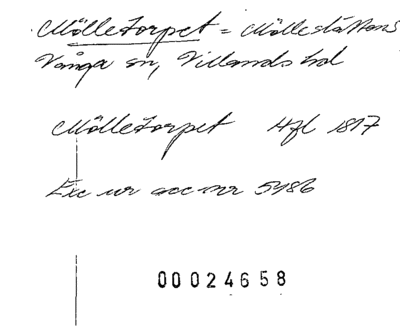 Mölletorpet = Möllestättans
Vånga sn, Villands hd
Mölletorpet Hfl 1817
Exc ur acc nr 5486
00024658